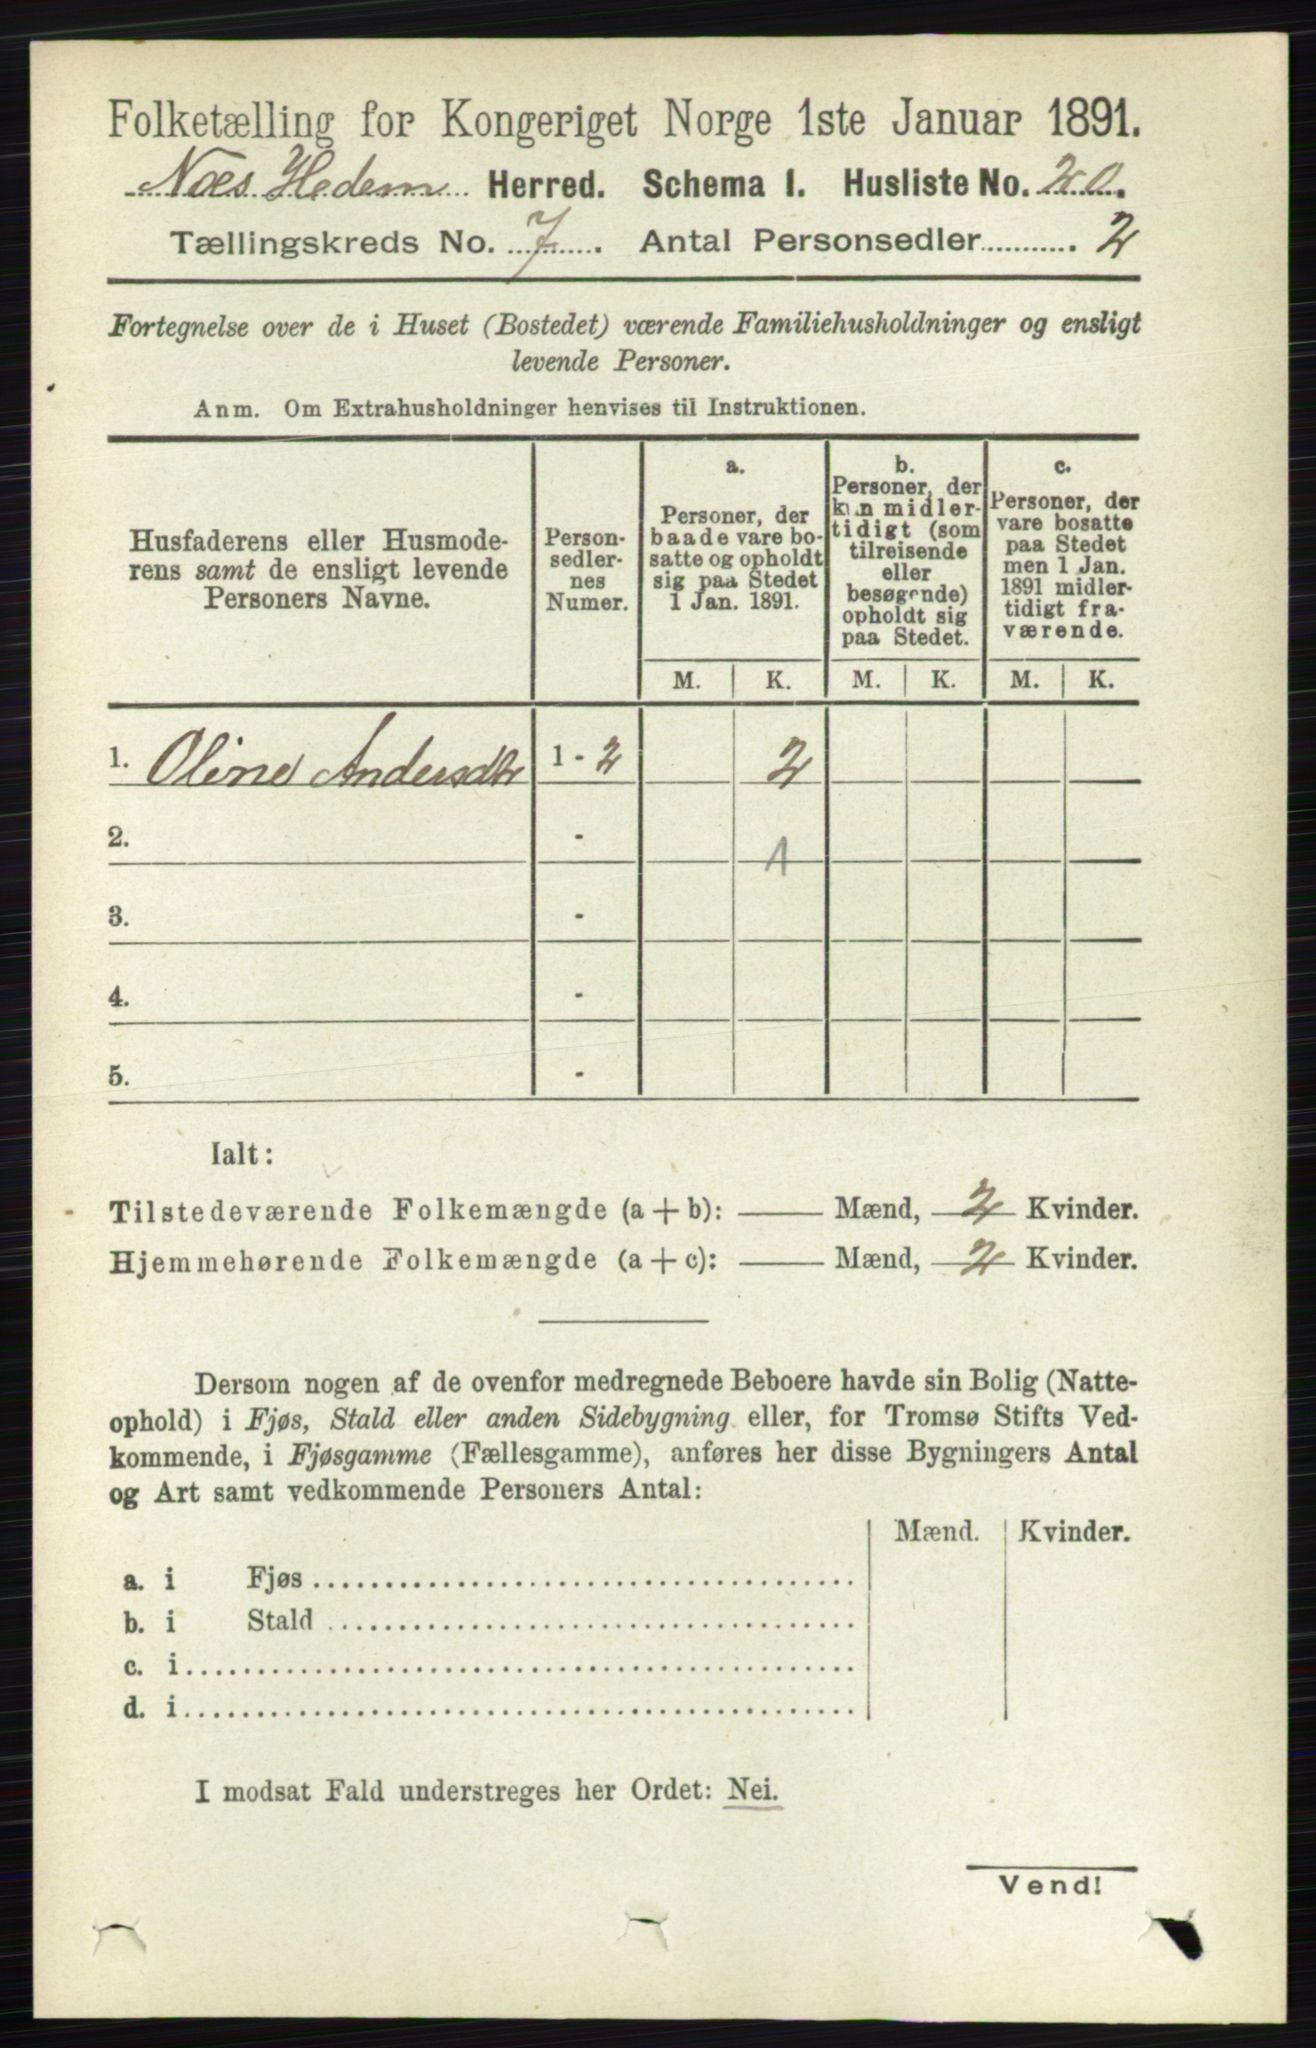 Folketælling for Kongeriget Norge 1ste Januar 1891.
Næs Hedem Herred. Schema I. Husliste No. 20.
Tællingskreds No. 7. Antal Personsedler........... 2
Fortegnelse over de i Huset (Bostedet) værende Familiehusholdninger og ensligt
levende Personer.
Anm. Om Extrahusholdninger henvises til Instruktionen.
Husfaderens eller Husmode-
rens samt de ensligt levende
Personers Navne.
Person-
sedler-
nes
Numer.
a.
Personer, der
baade vare bo-
satte og opholdt
sig paa Stedet
1 Jan. 1891.
b.
Personer, der
kun midler-
tidigt (som
tilreisende
eller
besøgende)
opholdt sig
paa Stedet.
c.
Personer, der
vare bosatte
paa Stedet
men 1 Jan.
1891 midler-
tidigt fra-
værende.
M. K. M. K. M. K.
1. Oline Andersdtr 1 - 2 2
2. - 1
3. -
4. -
5. -
Ialt:
Tilstedeværende Folkemængde (a + b): —— Mænd, 2 Kvinder.
Hjemmehørende Folkemængde (a + c): —— Mænd, 2 Kvinder.
Dersom nogen af de ovenfor medregnede Beboere havde sin Bolig (Natte-
ophold) i Fjøs, Stald eller anden Sidebygning eller, for Tromsø Stifts Ved-
kommende, i Fjøsgamme (Fællesgamme), anføres her disse Bygningers Antal
og Art samt vedkommende Personers Antal:
Mænd. Kvinder.
a. i Fjøs
b. i Stald
c. i
d. i
I modsat Fald understreges her Ordet: Nei.
Vend!